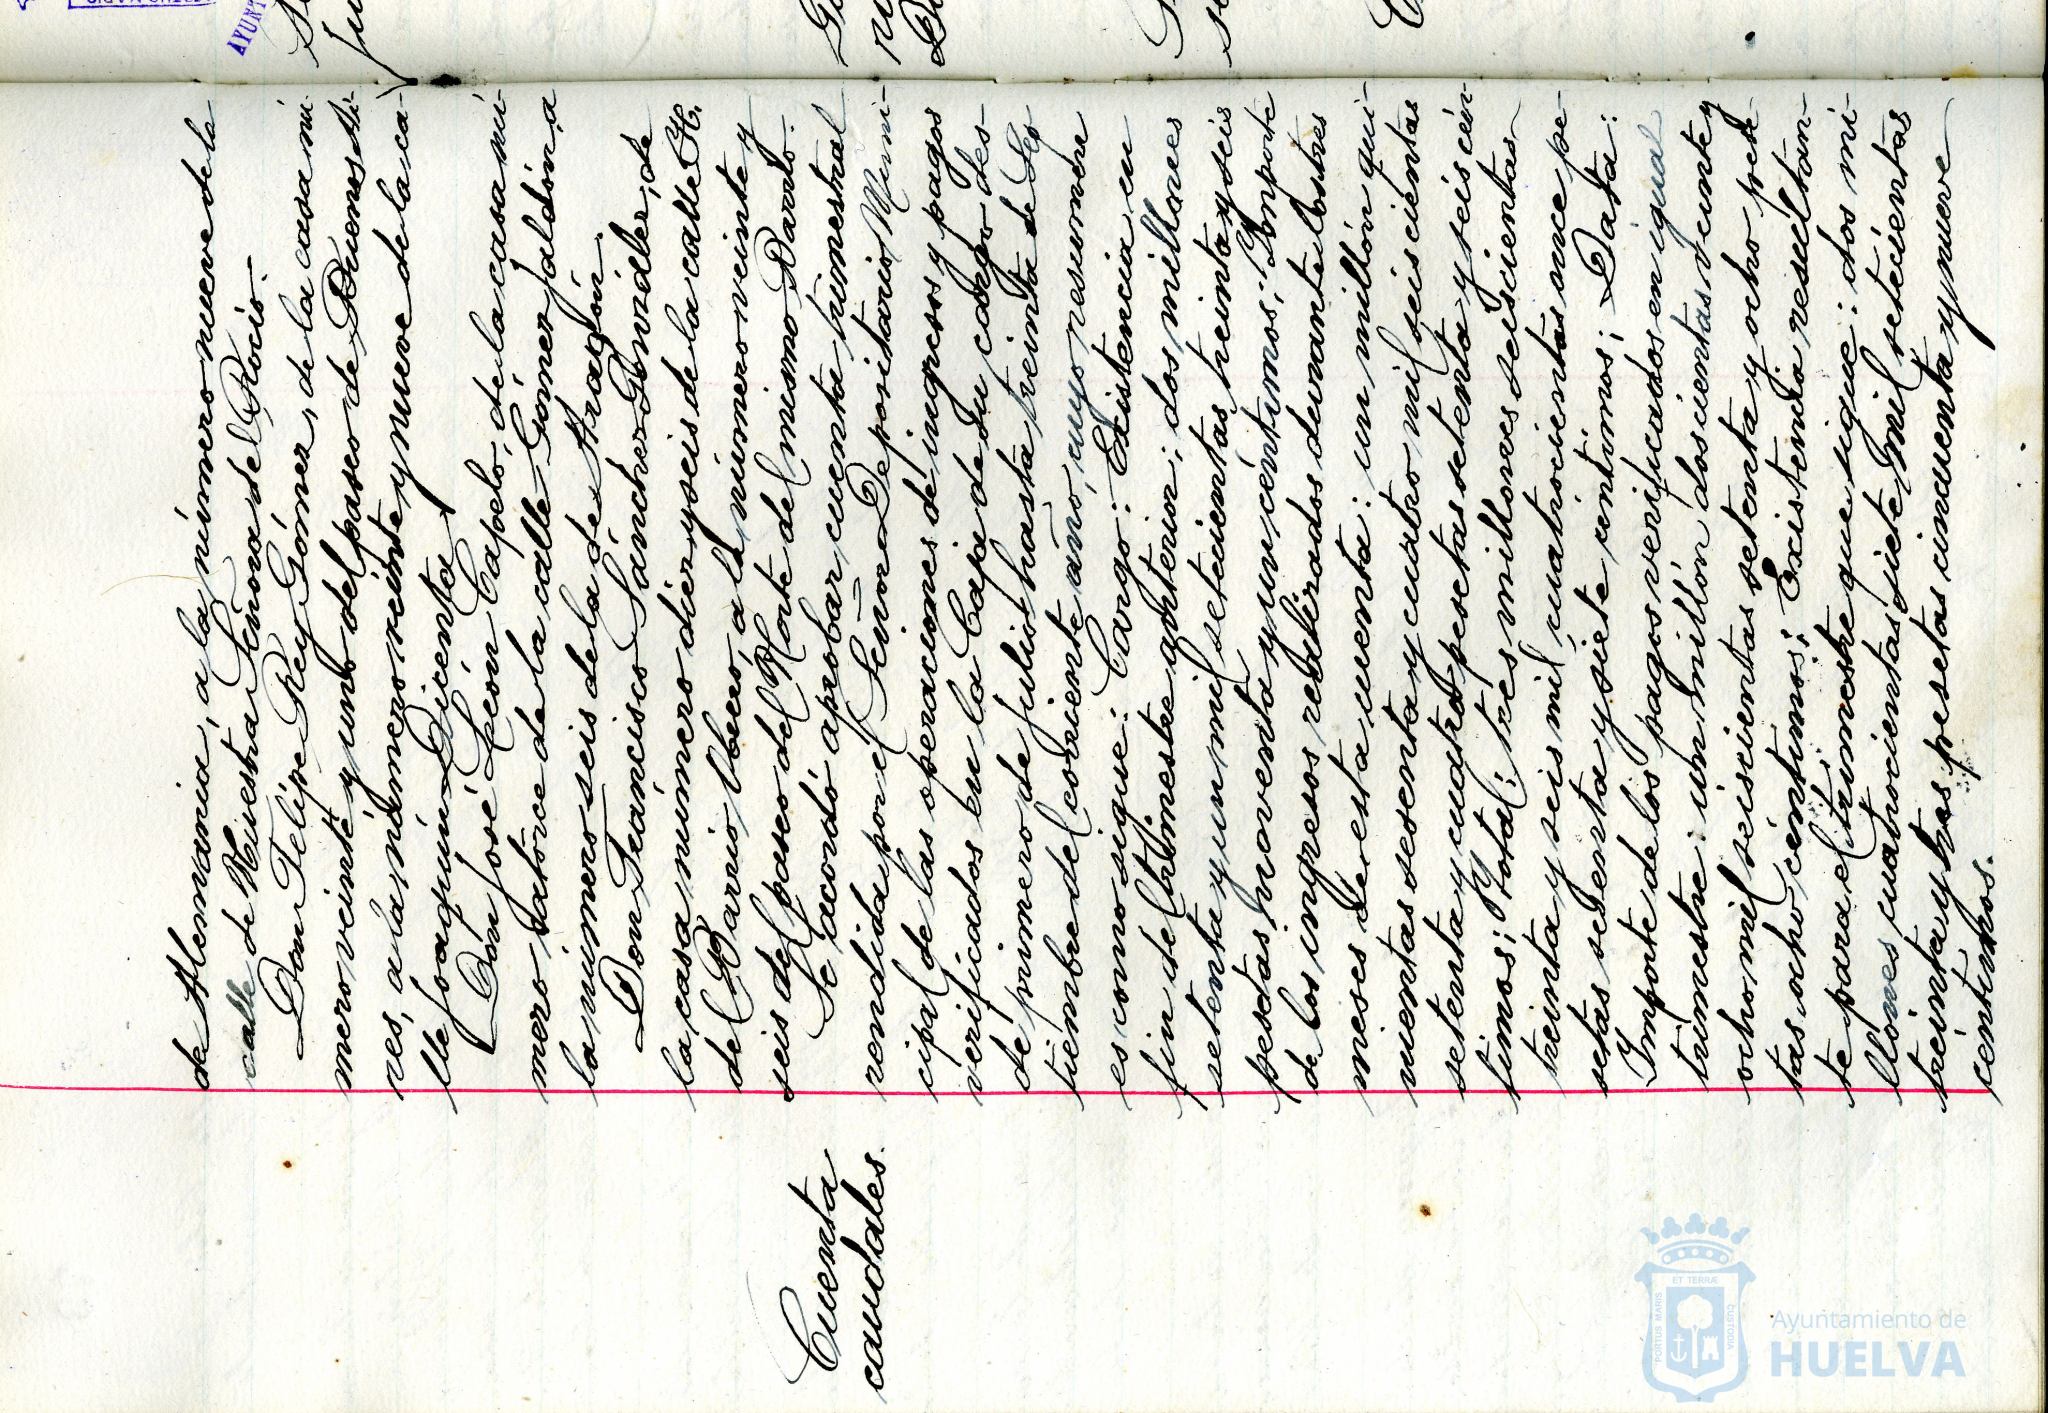 de Alemania, a la número nueve de la
calle de Nuestra Señora del Rocío.-
Don Felipe Rey Gómez, de la casa nú-
mero veinte y uno del paseo de Buenos Ai-
res, a la número veinte y nueve de la ca-
lle Joaquín Dicenta
Don José León Capelo, de la casa nú-
mero catorce de la calle Gómez Jaldón, a
la número seis de la de Aragón.
Don Francisco Sánchez González, de
la casa número diez y seis de la calle H.
del Barrio Obrero, a la número veinte y
seis del paseo del Norte del mismo Barrio.
Cuenta
caudales.
Se acordó aprobar cuenta trimestral
rendida por el Señor Depositario Muni-
cipal de las operaciones de ingresos y pagos
verificados en la Caja de su cargo des-
de primero de Julio hasta treinta de Sep
tiembre del corriente año, cuyo resumen
es como sigue: Cargo: Existencia en
fin del trimestre anterior, dos millones
setenta y un mil setecientas treinta y seis
pesetas, noventa y un céntimos; Importe
de los ingresos realizados durante los tres
meses de esta cuenta: un millón qui-
nientas sesenta y cuatro mil seiscientas
setenta y cuatro pesetas setenta y seis cén-
timos; Total: tres millones seiscientas
treinta y seis mil, cuatrocientas once pe-
setas sesenta y siete céntimos; Data:
Importe de los pagos verificados en igual
trimestre: un millón doscientas veinte y
ocho mil seiscientas setenta y ocho pese
tas ocho céntimos; Existencia resultan-
te para el trimestre que sigue: dos mi-
llones cuatrocientas siete mil setecientas
treinta y tres pesetas cincuenta y nueve
céntimos.
AYUNT
PORTUS MARIS ET TERRÆ CUSTODIA
Ayuntamiento de
HUELVA